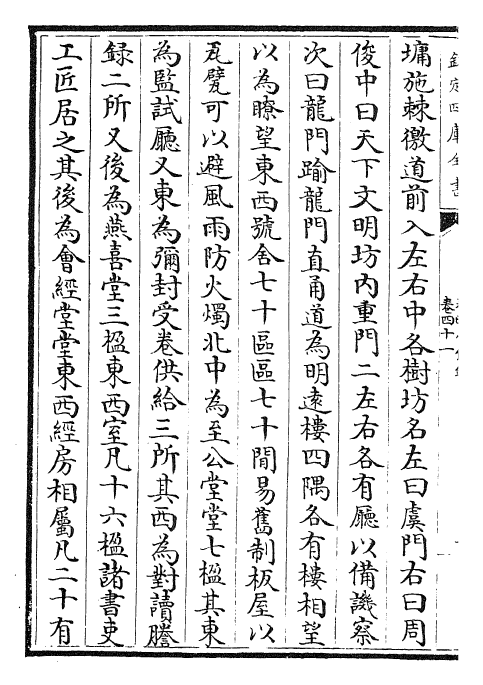 欽定四庫全書
卷四十一
墉施棘徼道前入左右中各樹坊名左曰虞門右曰周
俊中曰天下文明坊内重門二左右各有廳以備譏察
次曰龍門踰龍門直甬道為明遠樓四隅各有樓相望
以為瞭望東西號舍七十區區七十間易舊制板屋以
瓦甓可以避風雨防火燭北中為至公堂堂七楹其東
為監試廳又東為彌封受卷供給三所其西為對讀謄
録二所又後為燕喜堂三楹東西室凡十六楹諸書吏
工匠居之其後為會經堂堂東西經房相屬凡二十有